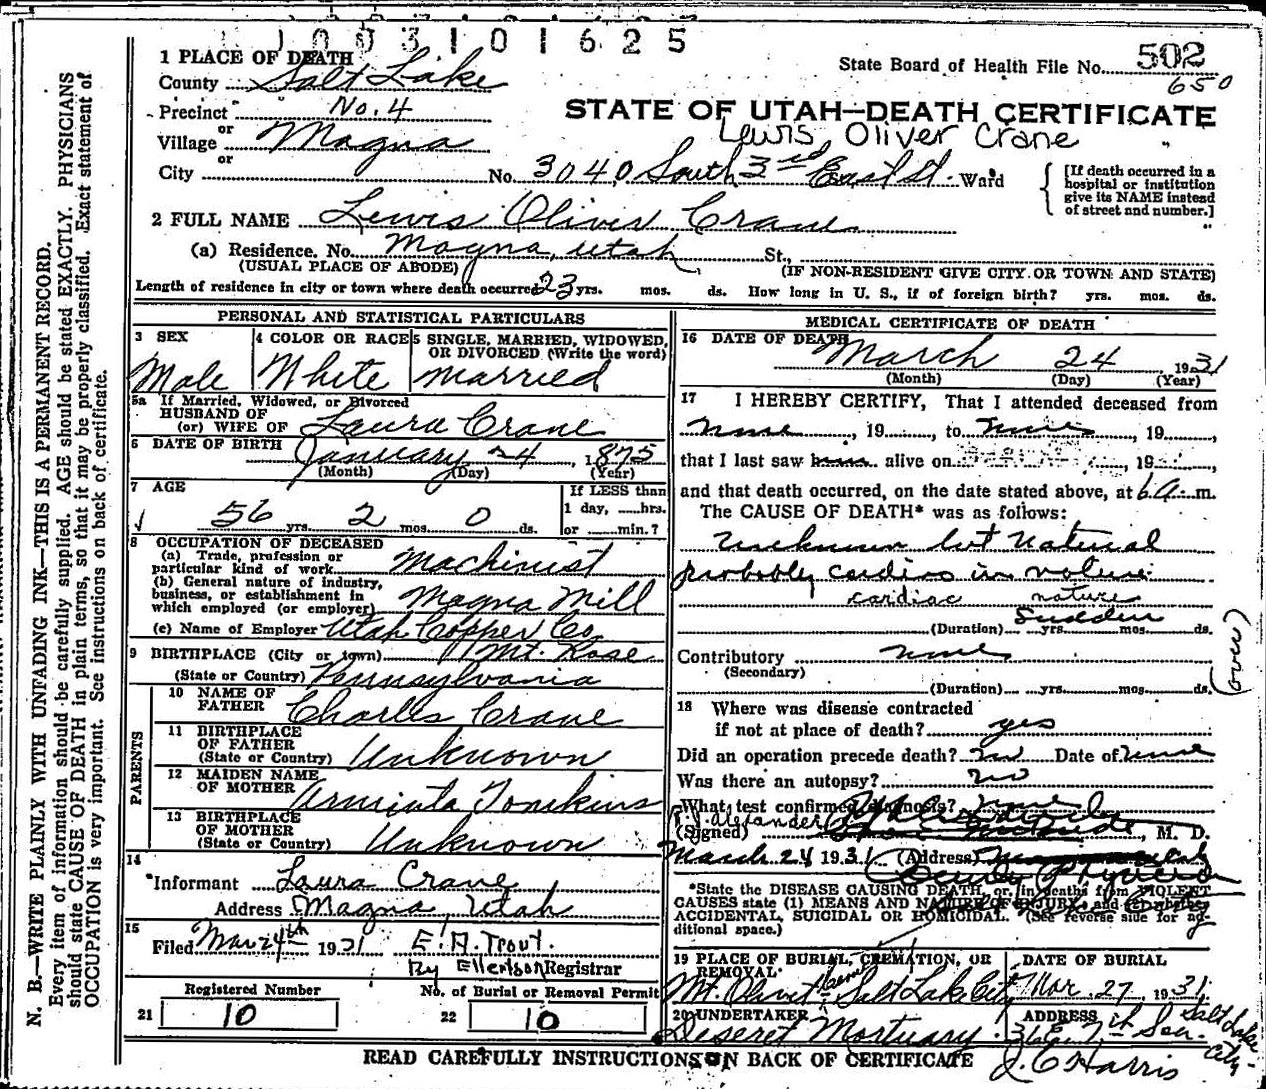 1003101625
1 PLACE OF DEATH
County Salt Lake
State Board of Health File No. 502
650
Precinct No. 4
STATE OF UTAH—DEATH CERTIFICATE
or
Village Magna
Lewis Oliver Crane
or
City No. 3040 South 3rd East St. Ward
[If death occurred in a
hospital or institution
give its NAME instead
of street and number.]
2 FULL NAME Lewis Oliver Crane
(a) Residence. No. Magna, Utah St.,
(USUAL PLACE OF ABODE) (IF NON-RESIDENT GIVE CITY OR TOWN AND STATE)
Length of residence in city or town where death occurred 23 yrs. mos. ds. How long in U. S., if of foreign birth? yrs. mos. ds.
PERSONAL AND STATISTICAL PARTICULARS
3 SEX
Male
4 COLOR OR RACE
White
5 SINGLE, MARRIED, WIDOWED,
OR DIVORCED (Write the word)
married
5a If Married, Widowed, or Divorced
HUSBAND OF
(or) WIFE OF Laura Crane
6 DATE OF BIRTH January 24, 1875
(Month) (Day) (Year)
7 AGE
56 yrs. 2 mos. 0 ds.
If LESS than
1 day, ......hrs.
or ......min.?
8 OCCUPATION OF DECEASED
(a) Trade, profession or
particular kind of work Machinist
(b) General nature of industry,
business, or establishment in
which employed (or employer) Magna Mill
(c) Name of Employer Utah Copper Co
9 BIRTHPLACE (City or town) Mt. Rose
(State or Country) Pennsylvania
PARENTS
10 NAME OF
FATHER Charles Crane
11 BIRTHPLACE
OF FATHER
(State or Country) Unknown
12 MAIDEN NAME
OF MOTHER Arminta Tomkins
13 BIRTHPLACE
OF MOTHER
(State or Country) Unknown
14
Informant Laura Crane
Address Magna, Utah
15
Filed Mar 24th 1931 E. A. Trout.
By Ellertson Registrar
Registered Number
21 10
No. of Burial or Removal Permit
22 10
MEDICAL CERTIFICATE OF DEATH
16 DATE OF DEATH March 24 1931
(Month) (Day) (Year)
17 I HEREBY CERTIFY, That I attended deceased from
none, 19......, to none, 19......,
that I last saw h... alive on ......, 19......,
and that death occurred, on the date stated above, at 6 a. m.
The CAUSE OF DEATH* was as follows:
Unknown but Natural
probably cardiac in nature
cardiac nature
Sudden
(Duration) yrs. mos. ds.
Contributory none
(Secondary)
(Duration) yrs. mos. ds.
(over)
18 Where was disease contracted
if not at place of death? yes
Did an operation precede death? no Date of none
Was there an autopsy? no
What test confirmed diagnosis? none
Alexander
(Signed) , M. D.
March 24 1931 (Address)
Deputy
*State the DISEASE CAUSING DEATH, or, in deaths from VIOLENT
CAUSES state (1) MEANS AND NATURE OF INJURY, and (2) whether
ACCIDENTAL, SUICIDAL OR HOMICIDAL. (See reverse side for ad-
ditional space.)
19 PLACE OF BURIAL, CREMATION, OR
REMOVAL
Mt. Olivet Cem. Salt Lake City
DATE OF BURIAL
Mar. 27 1931
20 UNDERTAKER
Deseret Mortuary
ADDRESS
36 E. 7th So. Salt Lake City
J. C. Harris
READ CAREFULLY INSTRUCTIONS ON BACK OF CERTIFICATE
N. B.—WRITE PLAINLY WITH UNFADING INK—THIS IS A PERMANENT RECORD.
Every item of information should be carefully supplied. AGE should be stated EXACTLY. PHYSICIANS
should state CAUSE OF DEATH in plain terms, so that it may be properly classified. Exact statement of
OCCUPATION is very important. See instructions on back of certificate.